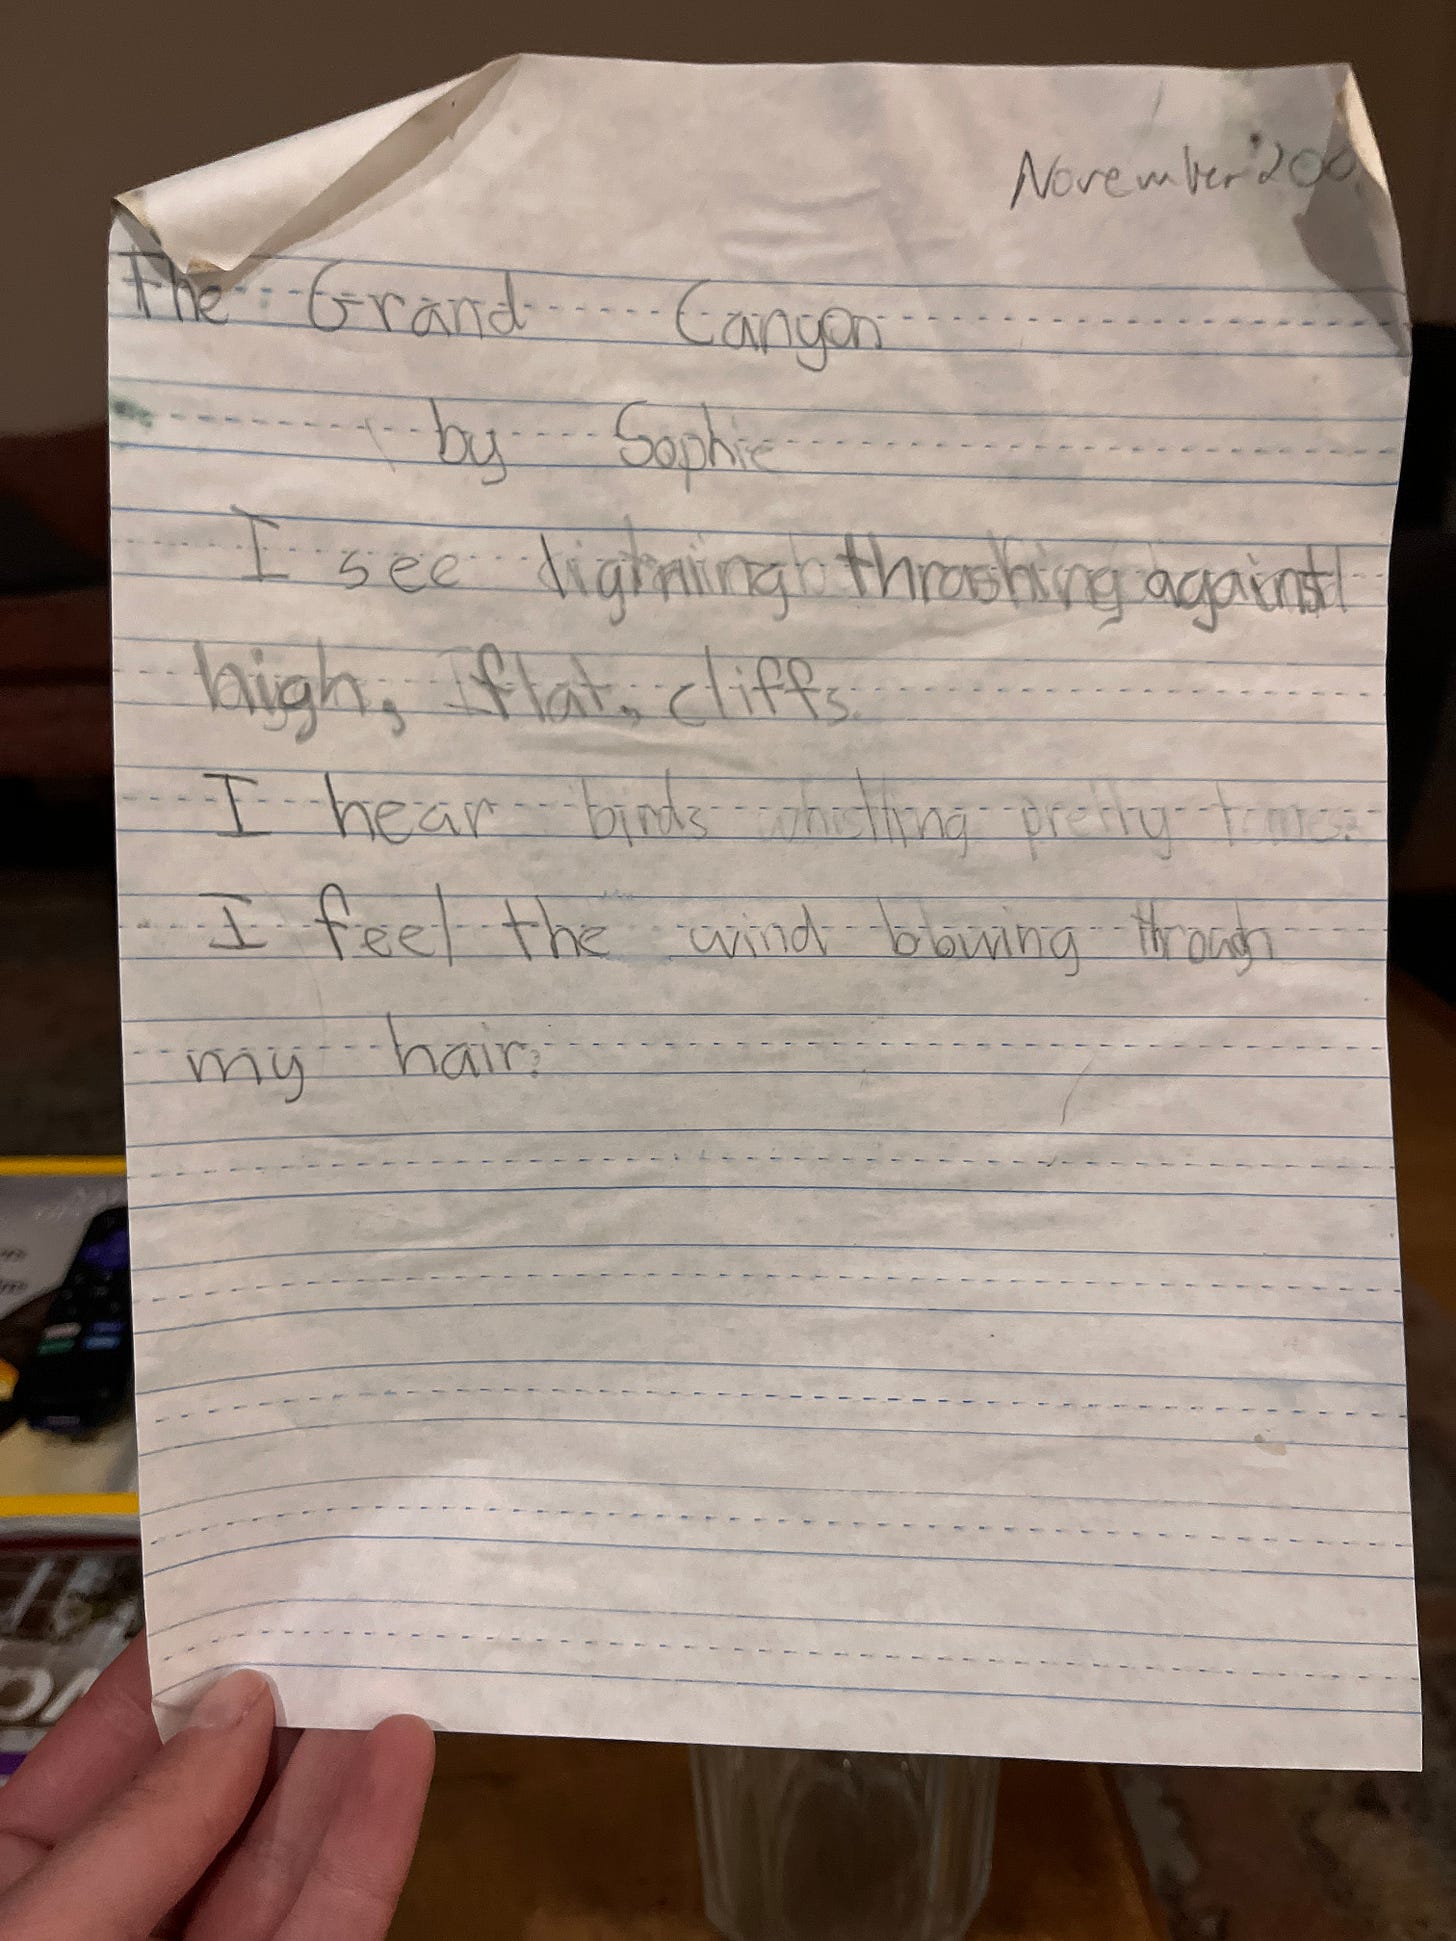 November 200
The Grand Canyon
by Sophie
I see lightning thrashing against
high, flat, cliffs.
I hear birds whistling pretty
I feel the wind blowing through
my hair.